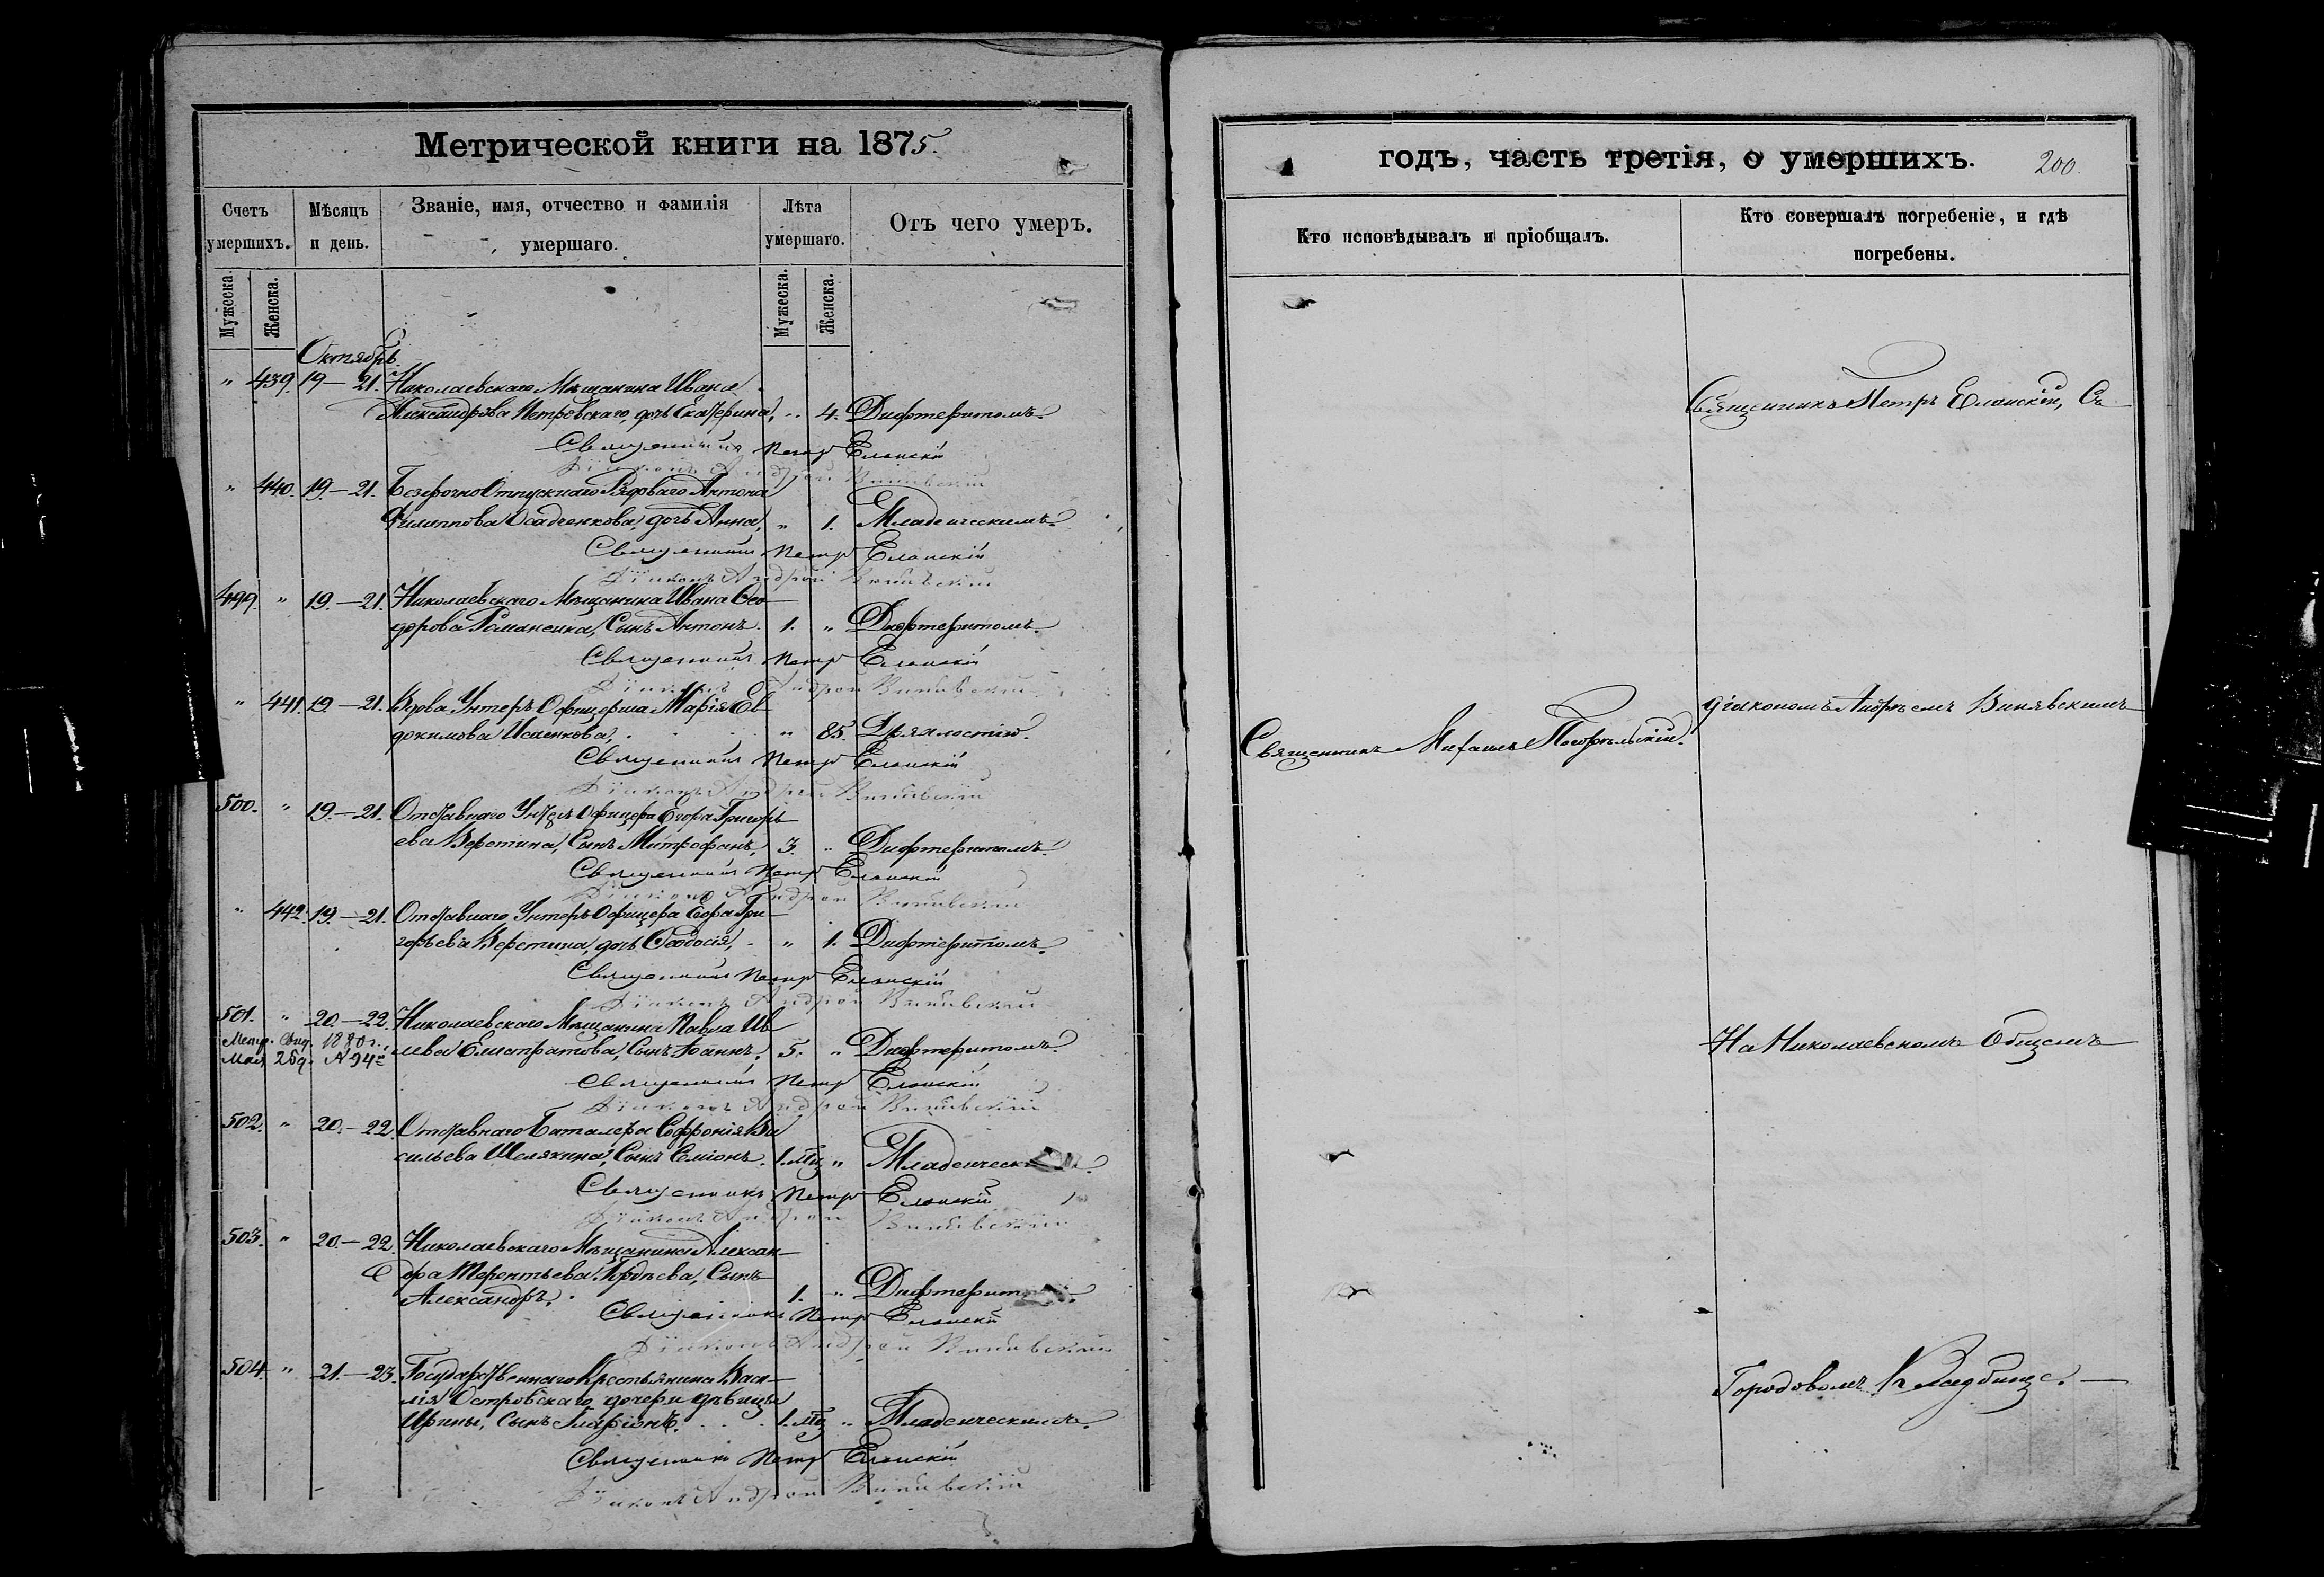 Метрической книги на 1875.
Счетъ умершихъ.
Мѣсяцъ и день.
Званіе, имя, отчество и фамилія умершаго.
Лѣта умершаго.
Отъ чего умеръ.
Мужеска.
Женска.
Мужеска.
Женска.
Октябрь.
" 439. 19–21. Николаевскаго Мѣщанина Ивана
Александрова Петровскаго, дочь Екатерина, " 4. Дифтеритомъ.
Священникъ Петръ Еланскій
Діаконъ Андрей
" 440. 19–21. Безсрочно Отпускнаго Рядоваго Антона
Филиппова Осадченкова, дочь Анна, " 1. Младенческимъ.
Священникъ Петръ Еланскій
Діаконъ Андрей
499. " 19–21. Николаевскаго Мѣщанина Ивана Ѳео-
дорова Романенка, Сынъ Антонъ. 1. " Дифтеритомъ.
Священникъ Петръ Еланскій
Діаконъ Андрей
" 441. 19–21. Вдова Унтеръ Офицерша Марія Ев-
докимова Исаенкова, " 85. Дряхлостію.
Священникъ Петръ Еланскій
Діаконъ Андрей
500. " 19–21. Отставнаго Унтеръ Офицера Егора Григорь-
ева Веретина, Сынъ Митрофанъ, 3. " Дифтеритомъ.
Священникъ Петръ Еланскій
Діаконъ Андрей
" 442. 19–21. Отставнаго Унтеръ Офицера Егора Гри-
горьева Веретина, дочь Ѳеодосія, " 1. Дифтеритомъ.
Священникъ Петръ Еланскій
Діаконъ Андрей
501. " 20–22. Николаевскаго Мѣщанина Павла
Метр. Свид.
Елистратова, Сынъ Іоаннъ. 5. " Дифтеритомъ.
Священникъ Петръ Еланскій
Діаконъ Андрей
502. " 20–22. Отставнаго Баталера Софронія Ва
сильева Шелякина, Сынъ Сѵмеонъ. 1. мц " Младенческ
Священникъ Петръ Еланскій
Діаконъ Андрей
503. " 20–22. Николаевскаго Мѣщанина Алексан-
дра Терентьева Гордѣева, Сынъ
Александръ. 1. " Дифтерит
Священникъ Петръ Еланскій
Діаконъ Андрей
504. " 21–23. Государственнаго Крестьянина Васи-
лія Островскаго, дочери дѣвицы
Ирины, Сынъ Иларіонъ. 1. мц " Младенческимъ.
Священникъ Петръ Еланскій
Діаконъ Андрей
годъ, часть третія, о умершихъ. 200.
Кто исповѣдывалъ и пріобщалъ.
Кто совершалъ погребеніе, и гдѣ погребены.
Священникъ Петръ Еланскій, Съ
діакономъ Андреемъ Винявскимъ
Священникъ Михаилъ Погорѣльскій.
На Николаевскомъ Общемъ
Городовомъ Кладбищѣ.